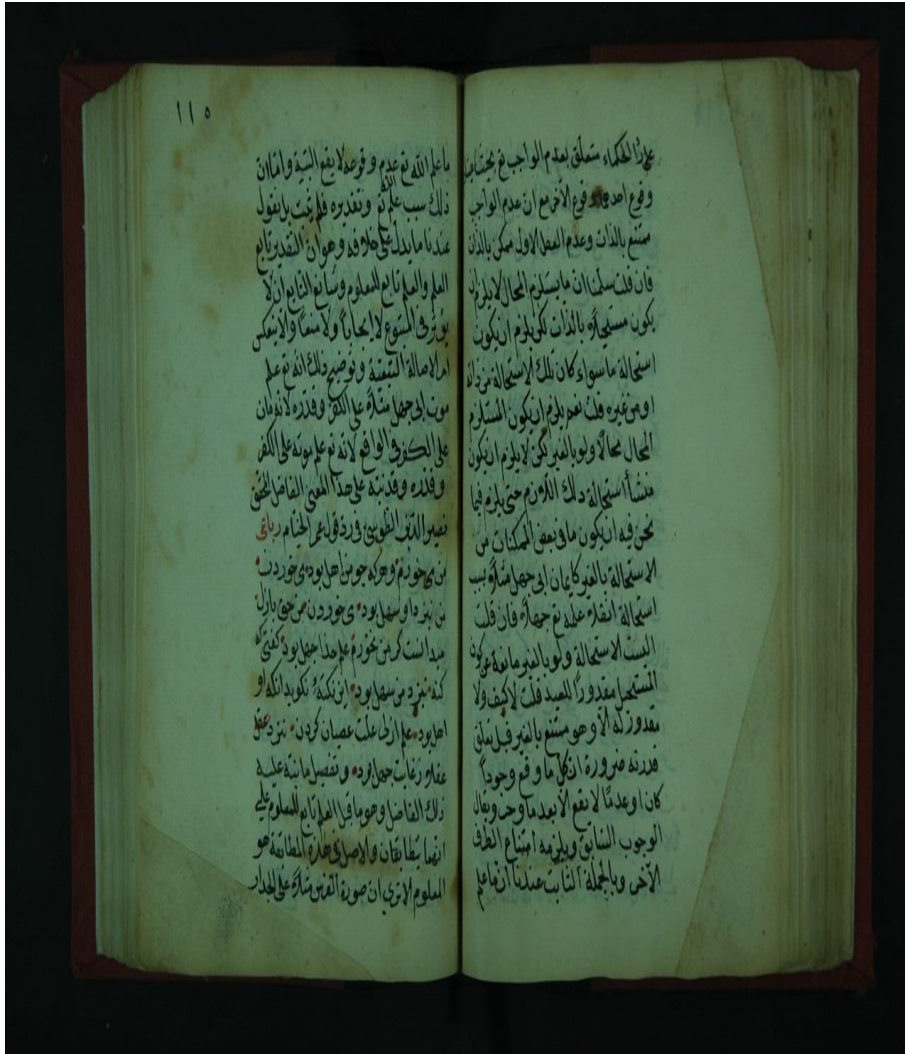 على ان الحكماء متعلق بعدم الواجب تع
وقوع احدهما وقوع الآخر مع ان عدم الواجب
ممتنع بالذات وعدم العقل الاول ممكن بالذات
فان قلت سلمنا ان ما يستلزم المحال لا يلزم ان
يكون مستحيلا بالذات لكن يلزم ان يكون
استحالة ما سواء كان تلك الاستحالة من ذاته
او من غيره قلت نعم يلزم ان يكون المستلزم
المحال محالا ولو بالغير لكن لا يلزم ان يكون
منشأ استحالة ذلك اللازم حتى يلزم فيما
نحن فيه ان يكون ما في بعض الممكنات من
الاستحالة بالغير كايمان ابى جهل مثلا بسبب
استحالة انقلاب علمه تع جهلا فان قلت
اليست الاستحالة ولو بالغير مانعة عن كون
المستحيل مقدورا للعبد قلت لا كيف ولا
مقدور له الا وهو ممتنع بالغير قبل تعلق
قدرته ضرورة ان كل ما وقع وجودا
كان او عدما لا يقع الا بعد ما وجب ويقال
الوجوب السابق ويلزمه امتناع الطرف
الآخر وبالجملة الثابت عندنا ان ما علم
١١٥
ما علم الله تع عدم وقوعه لا يقع البتة واما ان
ذلك سبب علم الله تع وتقديره فلم يثبت بل نقول
عندنا ما يدل على خلافه وهو ان التقدير تابع
العلم والعلم تابع للمعلوم وشان التابع ان لا
يؤثر فى المتبوع لا ايجابا ولا منعا والا ينعكس
امر الاصالة التبعية وتوضيح ذلك انه تع علم
موت ابى جهل مثلا على الكفر وقدره لانه مات
على الكفر فى الواقع لا انه تع علم موته على الكفر
وقدره وقد نبه على هذا المعنى الفاضل المحقق
نصير الدين الطوسى فى رد قول عمر الخيام رباعى
من مى خورم وهر كه چو من اهل بود مى خوردن
من بنزد او سهل بود مى خوردن من حق بازل
ميدانست گر من نخورم علم خدا جهل بود گفتى كه
گنه بنزد من سهل بود اين نكته نگويد انكه او
اهل بود علم ازلى علت عصيان كردن نزد عقلا
ز غايت جهل بود وتفصيل ما نبه عليه
ذلك الفاضل وهو ما قيل العلم تابع للمعلوم على
انهما متطابقان والاصل فى هذه المطابقة هو
المعلوم الا ترى ان صورة الفرس مثلا على الجدار